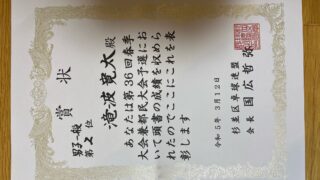 賞状
男子一般
第2位
滝波寛太殿
あなたは第36回春季
大会兼都民大会予選にお
いて頭書の成績を収めら
れたのでここにこれを表
彰します
令和5年3月12日
杉並区卓球連盟
会長 国広哲弥